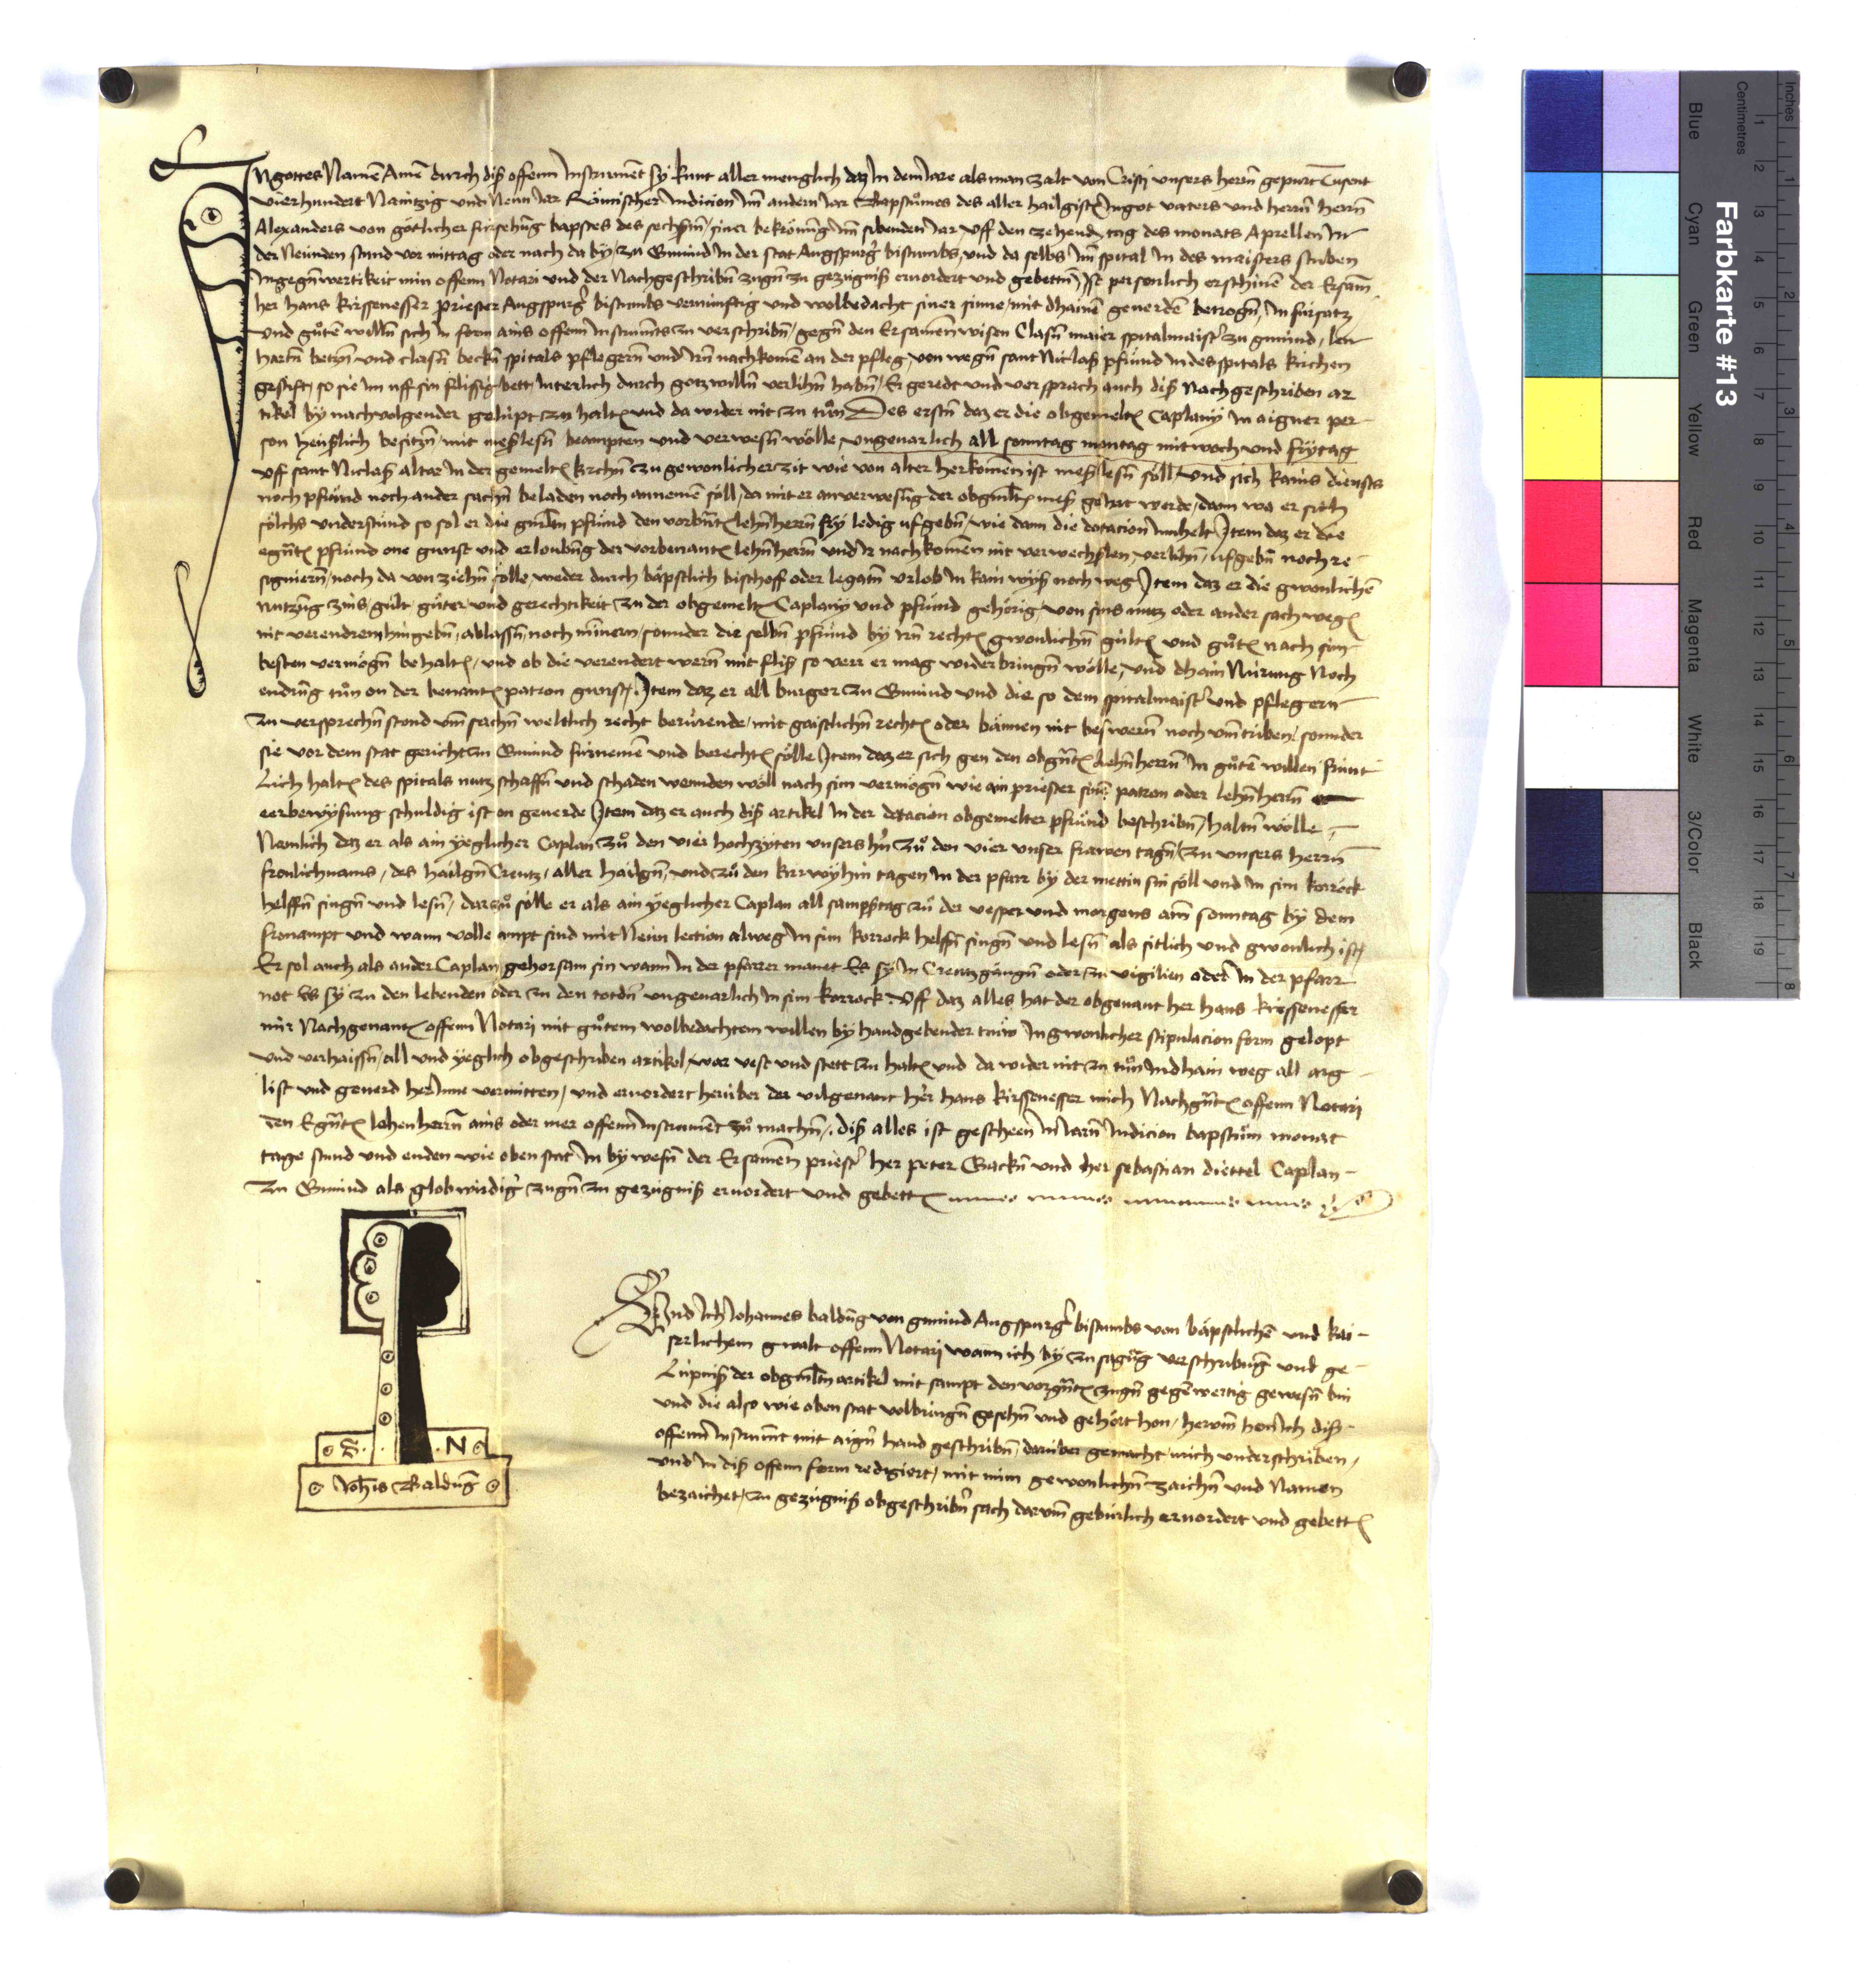 In gottes Namē Amē durch diß offenn Instrumēt sy kunt aller menglich daz In dem Jare als man zalt von Cristi unsers herrn̄ gepurt Tusent
vierhundert Naintzig und Neun Jar Römischer Indicion Im̄ andern Jar Bapstůmes des aller hailgistn̄ In got vaters und herrn̄ herrn̄
Alexanders von götlicher fürsehūg bapstes des sechstn̄, siner bekrönūg Im̄ sibenden Jar uff den zehend tag des monats Aprellen In
der Neunden stund vor mittag oder nach da by, zu Gmünd In der stat Augspurgr̄ bistumbs, und da selbs Im̄ spital In des maisters stuben
In gegn̄wertikeit min offenn Notari und der Nachgeschribn̄ zugn̄ zu gezügniß eruordert und gebettn̄, Ist personlich erschinē der Ersam̄
her hans kirssenesser priester Augspurgr̄ bistumbs vernünftig und wolbedacht siner sinne, mit dhainē geuerdē betrogn̄, In fürsatz
und gůtē willn̄ sich In form ains offenn Instrumēts zu verschribn̄, gegn̄ den Ersamen wisen Clasn̄ maier spitalmaistr̄ zu gmünd, len
hartn̄ betzn̄ und clasn̄ beckn̄ spitals pflegern̄ und Irn̄ nachkomē an der pfleg, von wegn̄ sant Niclaß pfründ In des spitals kirchen
gestift, so sie im uff sin flissig bett luterlich durch gotz willn̄ verlihn̄ habn̄, Er geredt und versprach auch diß Nachgeschriben ar
tikel by nachvolgender gelüpt zu haltn̄ und da wider nit zu tůn Des erstn̄ daz er die obgemeltn̄ Caplany In aigner per-
son heußlich besitzn̄ mit meßlesn̄ beampten und verwesn̄ wölle ungeuarlich all sonntag montag mitwoch und frytag
uff sant Niclaß altar In der gemeltn̄ kirchn̄ zu gewonlicher zit wie von alter herkomen ist meßlesn̄ söll und sich kains diensts
noch pfründ noch ander sachn̄ beladen noch annemē söll, da mit er an verwesūg der obgmltn̄ meß geirrt werde, dann wa er sich
sölchs understünd so sol er die gmltn̄ pfründ den vorbn̄tn̄ lehn̄herrn̄ fry ledig ufgebn̄, wie dann die dotacion Innhelt Item daz er die
egn̄tn̄ pfründ one gunst und erloubūg der vorbenantn̄ lehn̄herrn̄ und Ir nachkomen nit verwechßlen, verlihn̄, ufgebn̄ noch re-
signiern̄, noch da von ziehn̄ sölle, weder durch bäpstlich bischoff oder legatn̄ urlob In kain wyß noch weg Item daz er die gwonlichē
nutzūg zins gült gůter und gerechtikeit zu der obgemeltn̄ Caplany und pfründ gehörig von sins nutz oder ander sach wegn̄
nit verendren hingebn̄, ablassn̄, noch mindern, sonnder die selbn̄ pfründ by Irn̄ rechtn̄ gwonlichn̄ gültn̄ und gůtn̄ nach sim
besten vermögn̄ behaltn̄, und ob die verendert wern̄ mit fliß so verr er mag widerbringn̄ wölle, und dhain Nürung Noch
endrūg tůn on der benantn̄ patron gunst, Item daz er all burger zu Gmünd und die so dem spitalmaistr̄ und pflegern
zu versprechn̄ stond um̄ sachn̄ weltlich recht berürende, mit gaistlichn̄ rechtn̄ oder bännen nit beswern̄ noch umtriben, sonnder
sie vor dem stat gericht zu Gmünd fürnemē und berechtn̄ sölle Item daz er sich gen den obgn̄tn̄ lehn̄herrn̄ In gůtē willen frünt
Lich haltn̄ des spitals nutz schaffn̄ und schaden wennden wöll nach sim vermögn̄ wie ain priester sinē patron oder lehn̄herrn̄
eerbewysung schuldig ist on geuerde Item daz er auch diß artikel In der dotacion obgemelter pfründ beschribn̄, haltn̄ wölle,
Nemlich daz er als ain yeglicher Caplan zů den vier hochzyten unsers hn̄ zů den vier unser frawen tagn̄, zu unsers herrn̄
fronlichnams, des hailgn̄ Creutz, aller hailgn̄, und zů den kirwyhin tagen In der pfarr by der mettin sin söll und In sim korrock
helffn̄ singn̄ und lesn̄, darzů sölle er als ain yeglicher Caplan all sampßtag zů der vesper und morgens am̄ sonntag by dem
fronampt und wann volle ampt sind mit Neun lection alweg In sim korrock helffn̄ singn̄ und lesn̄ als sitlich und gwonlich ist,
Er sol auch als ander Caplan gehorsam sin wann In der pfarrer manet Es sy In Creutzgängn̄ oder zu vigilien oder In der pfarr
not Es sy zu den lebenden oder zu den totdn̄ ungeuarlich In sim korrock. Uff daz alles hat der obgenant her hans kirssenesser
mir Nachgenantn̄ offenn Notari mit gůtem wolbedachtem willen by handgebender trüw In gwonlicher stipulacion form gelopt
und verhaissn̄, all und yeglich obgeschriben artikel, war vest und stett zu haltn̄ und da wider nit zu tůn In dhain weg all arg
list und geuerd her Inne vermitten, und eruordert herüber der vilgenant her hans kirssenesser mich Nachgn̄tn̄ offenn Notari
den Egn̄tn̄ lehenherrn̄ ains oder mer offenn Instrumēt zů machn̄, diß alles ist gescheen In Jarn̄ Indicion bapstům monat
tage stund und enden wie oben stat In by wesn̄ der Ersamen̄ priestr̄ her peter Gackn̄ und her sebastian diettel Caplan
zu Gmünd als globwirdigr̄ zugn̄ zu gezügniß eruordert und gebettn̄
S. N
Joh̄is Baldūg
Und Ich Johannes baldūg von gmünd Augspurgr̄ bistumbs von bäpstlichē und kai-
serlichem gwalt offenn Notari wann ich by zusagūg verschribūg und ge-
Lüpniß der obgmltn̄ artikel mit sampt den vorgn̄tn̄ zugn̄ gegēwertig gewesn̄ bin
und die also wie oben stat volbringn̄ gesehn̄ und gehört hon, herum̄ hon Ich diß
offenn Instrum̄t mit aigner hand geschribn̄, darüber gemacht mich underschriben,
und In diß offenn form redigiert, mit mim gewonlichn̄ zaichn̄ und Namen
bezaichet, zu gezügniß obgeschribnr̄ sach darum̄ gebürlich eruordert und gebettn̄
Farbkarte #13
Blue Cyan Green Yellow Red Magenta White 3/Color Black
Centimetres 1 2 3 4 5 6 7 8 9 10 11 12 13 14 15 16 17 18 19
Inches 1 2 3 4 5 6 7 8